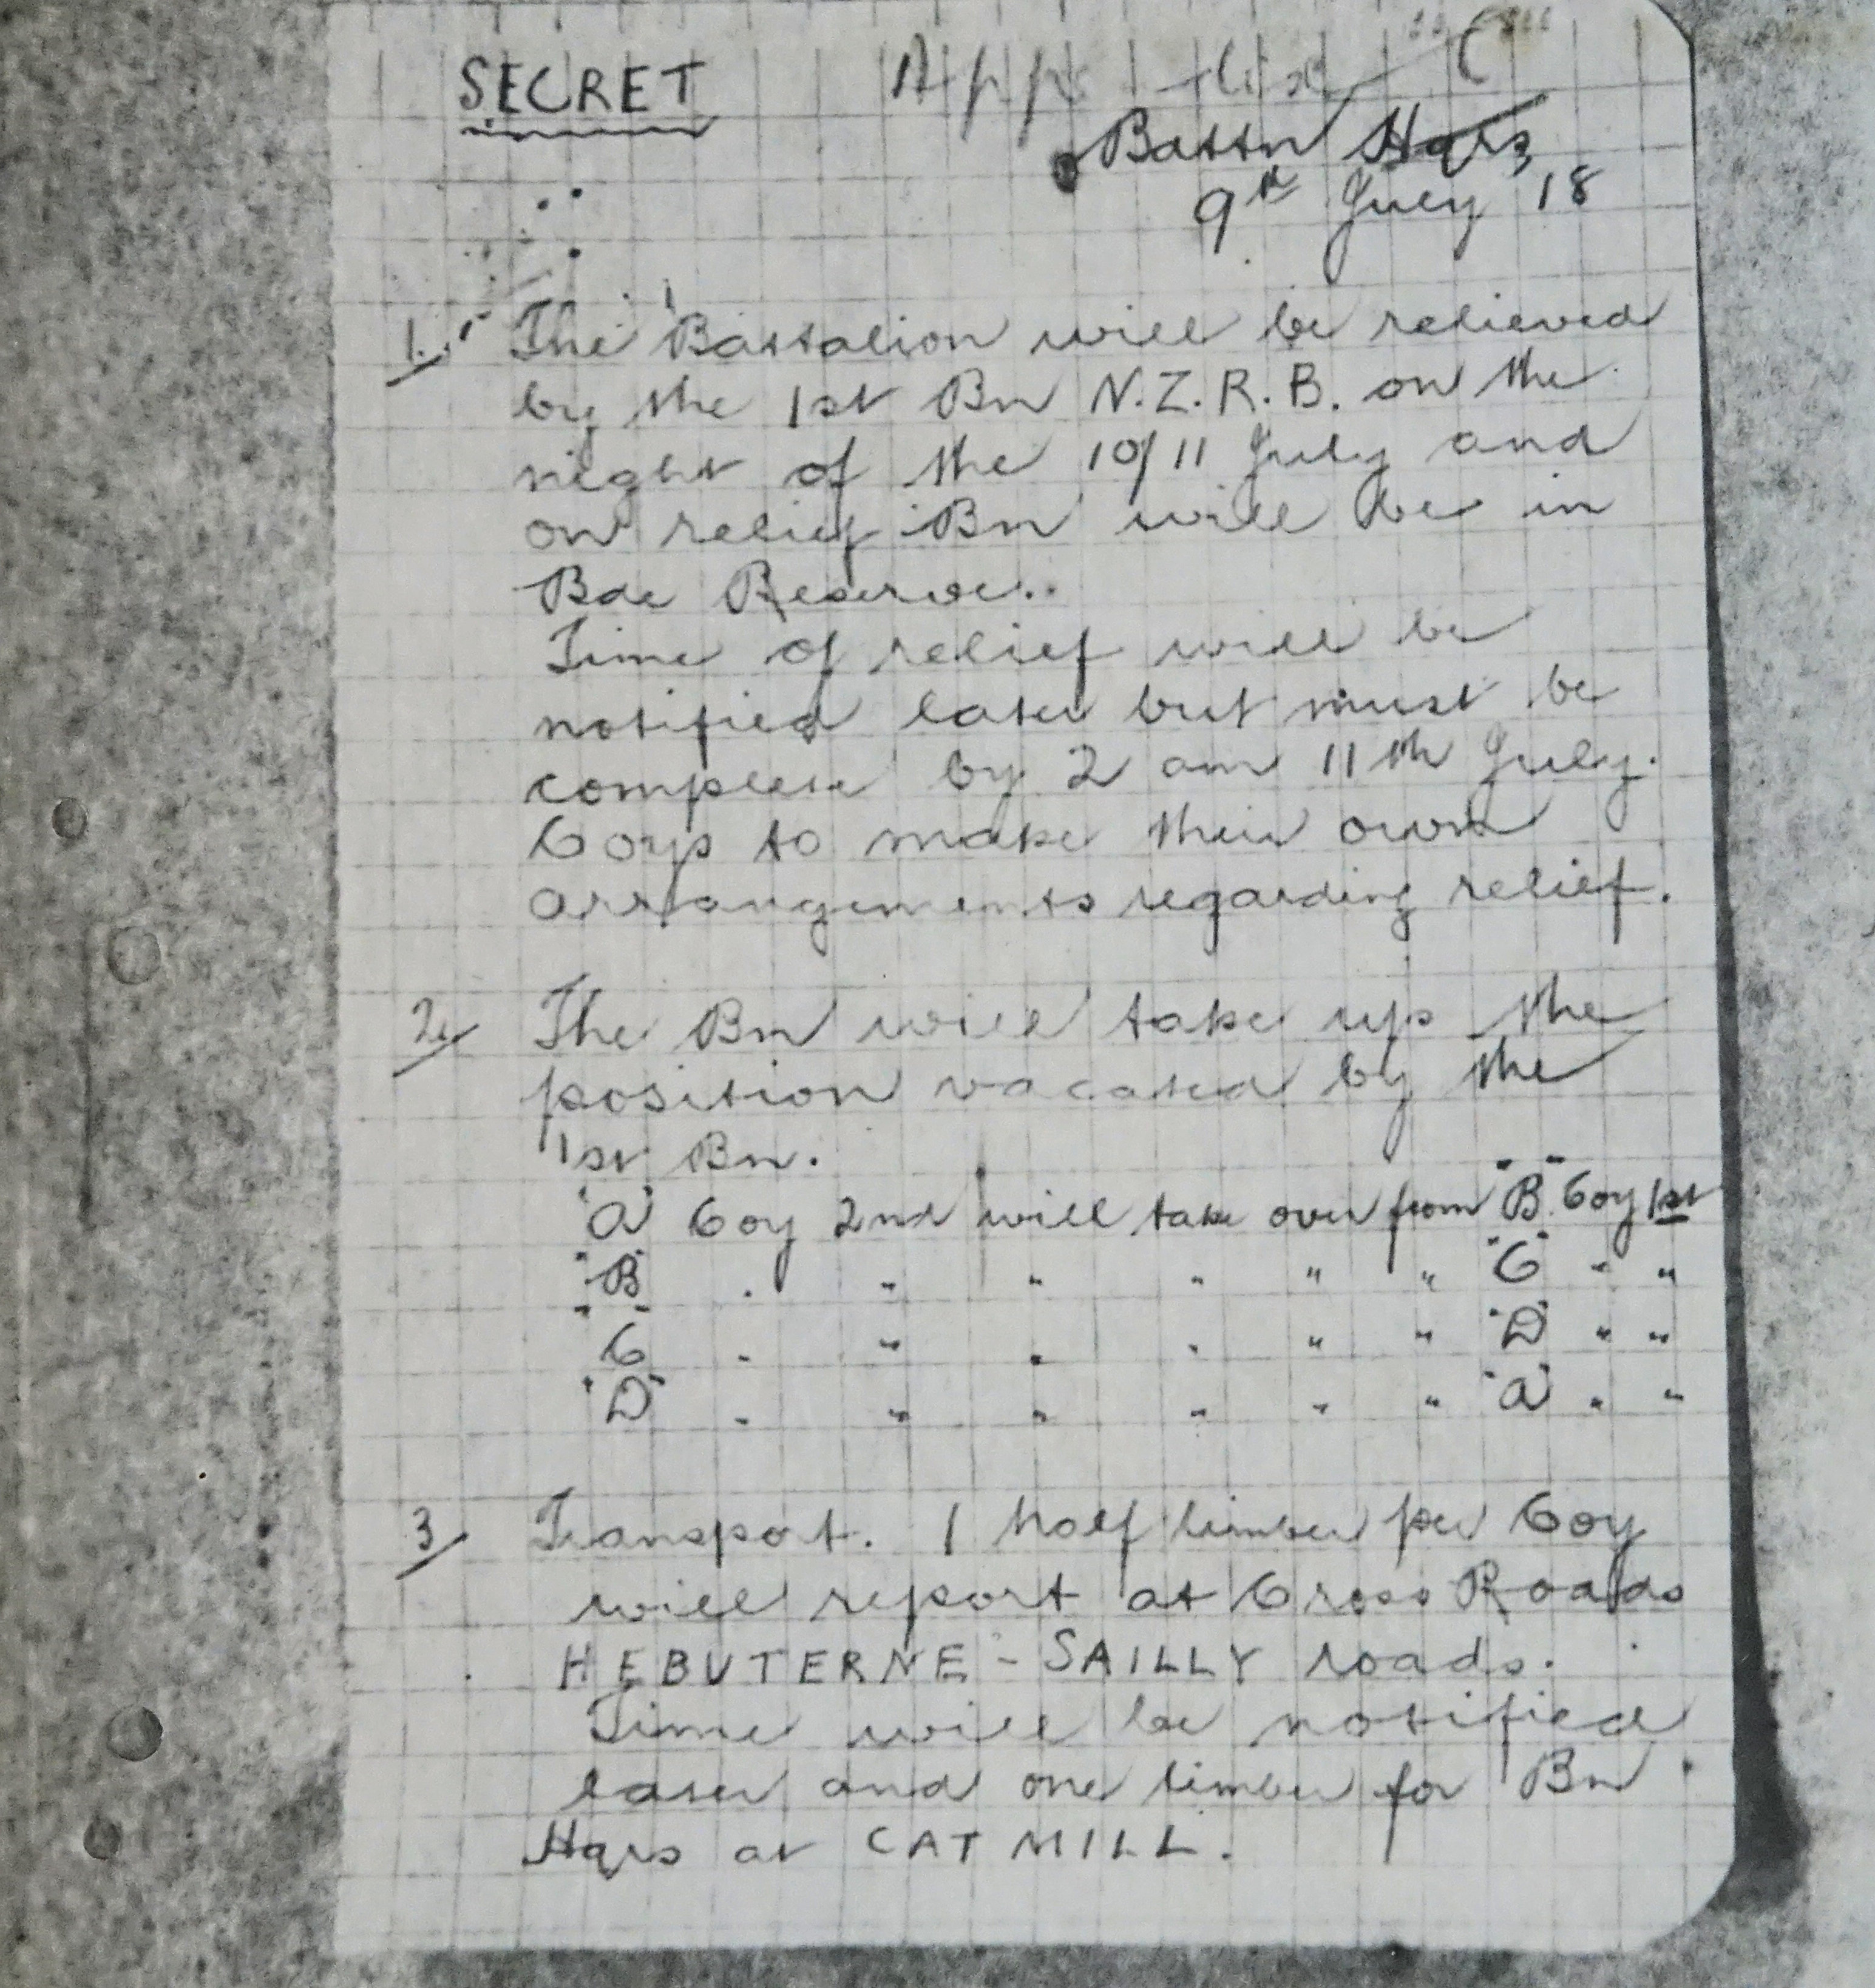 SECRET Appendix C
Battn Hqrs
9th July 18
1. The Battalion will be relieved
by the 1st Bn N.Z.R.B. on the
night of the 10/11 July and
on relief Bn will be in
Bde Reserve.
Time of relief will be
notified later but must be
complete by 2 am 11th July.
Coys to make their own
arrangements regarding relief.
2. The Bn will take up the
position vacated by the
1st Bn.
"A" Coy 2nd will take over from "B" Coy 1st
"B" " " " " " " "C" " "
"C" " " " " " " "D" " "
"D" " " " " " " "A" " "
3 Transport. 1 half limber per Coy
will report at Cross Roads
HEBUTERNE - SAILLY roads.
Time will be notified
later and one limber for Bn
Hqrs at CAT MILL.